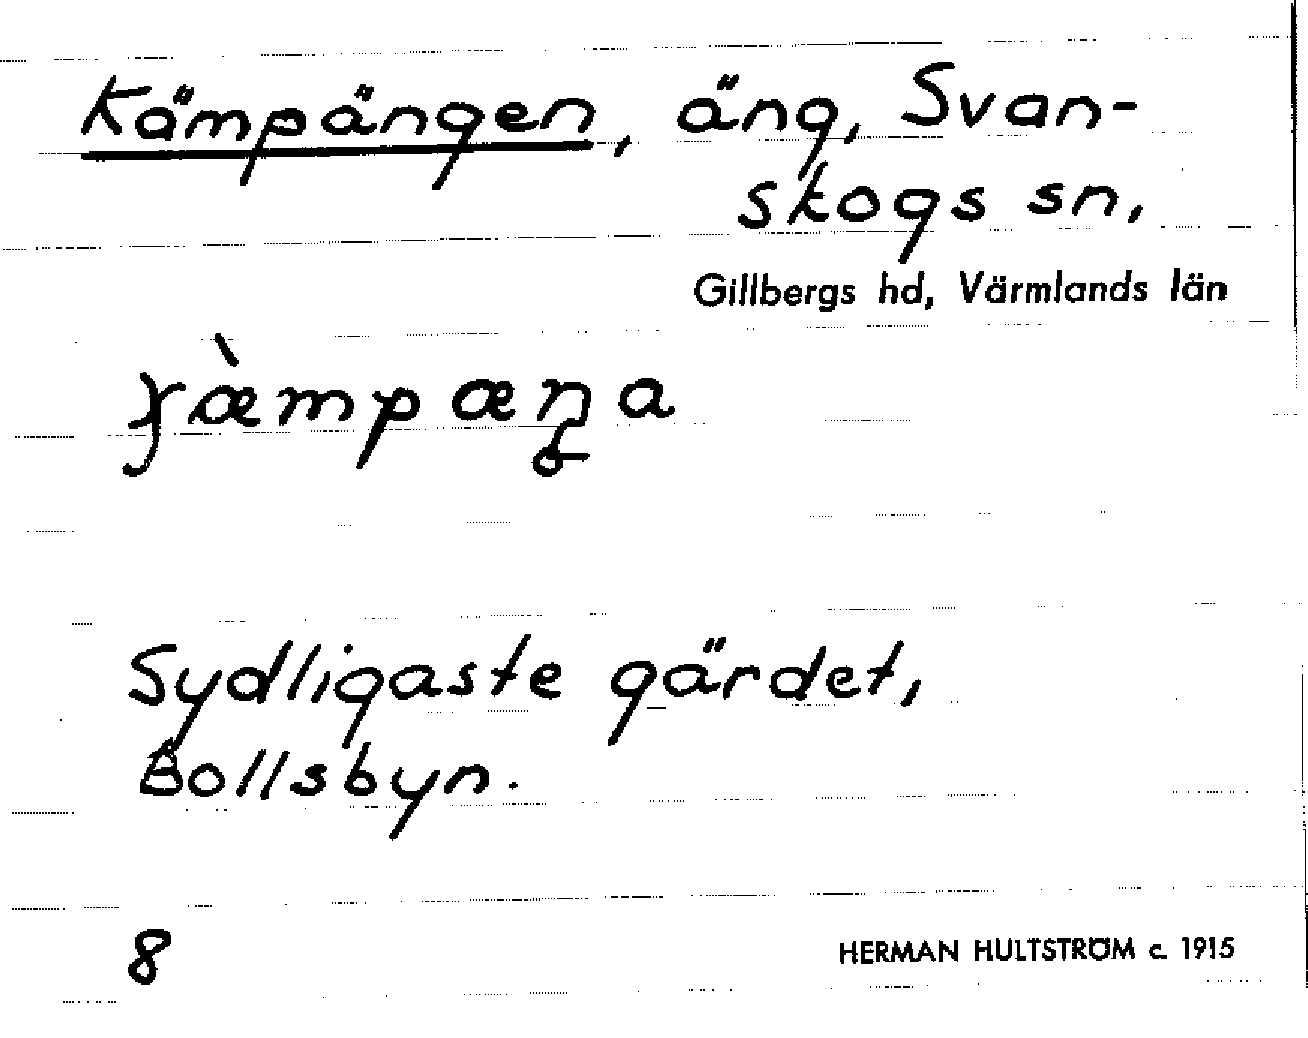 Kämpängen, äng, Svan-
skogs sn,
Gillbergs hd, Värmlands län
Sydligaste gärdet,
Bollsbyn.
8
HERMAN HULTSTRÖM c. 1915